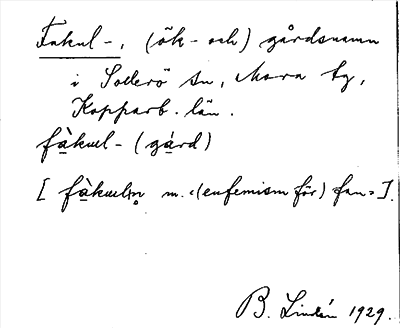 Fakul-, (ök- och) gårdsnamn
i Sollerö sn, Mora tg,
Kopparb. län.
fàkul- (gárd)
[fàkuln̥ m. "(eufemism för) fan"].
B. Lindén 1929.